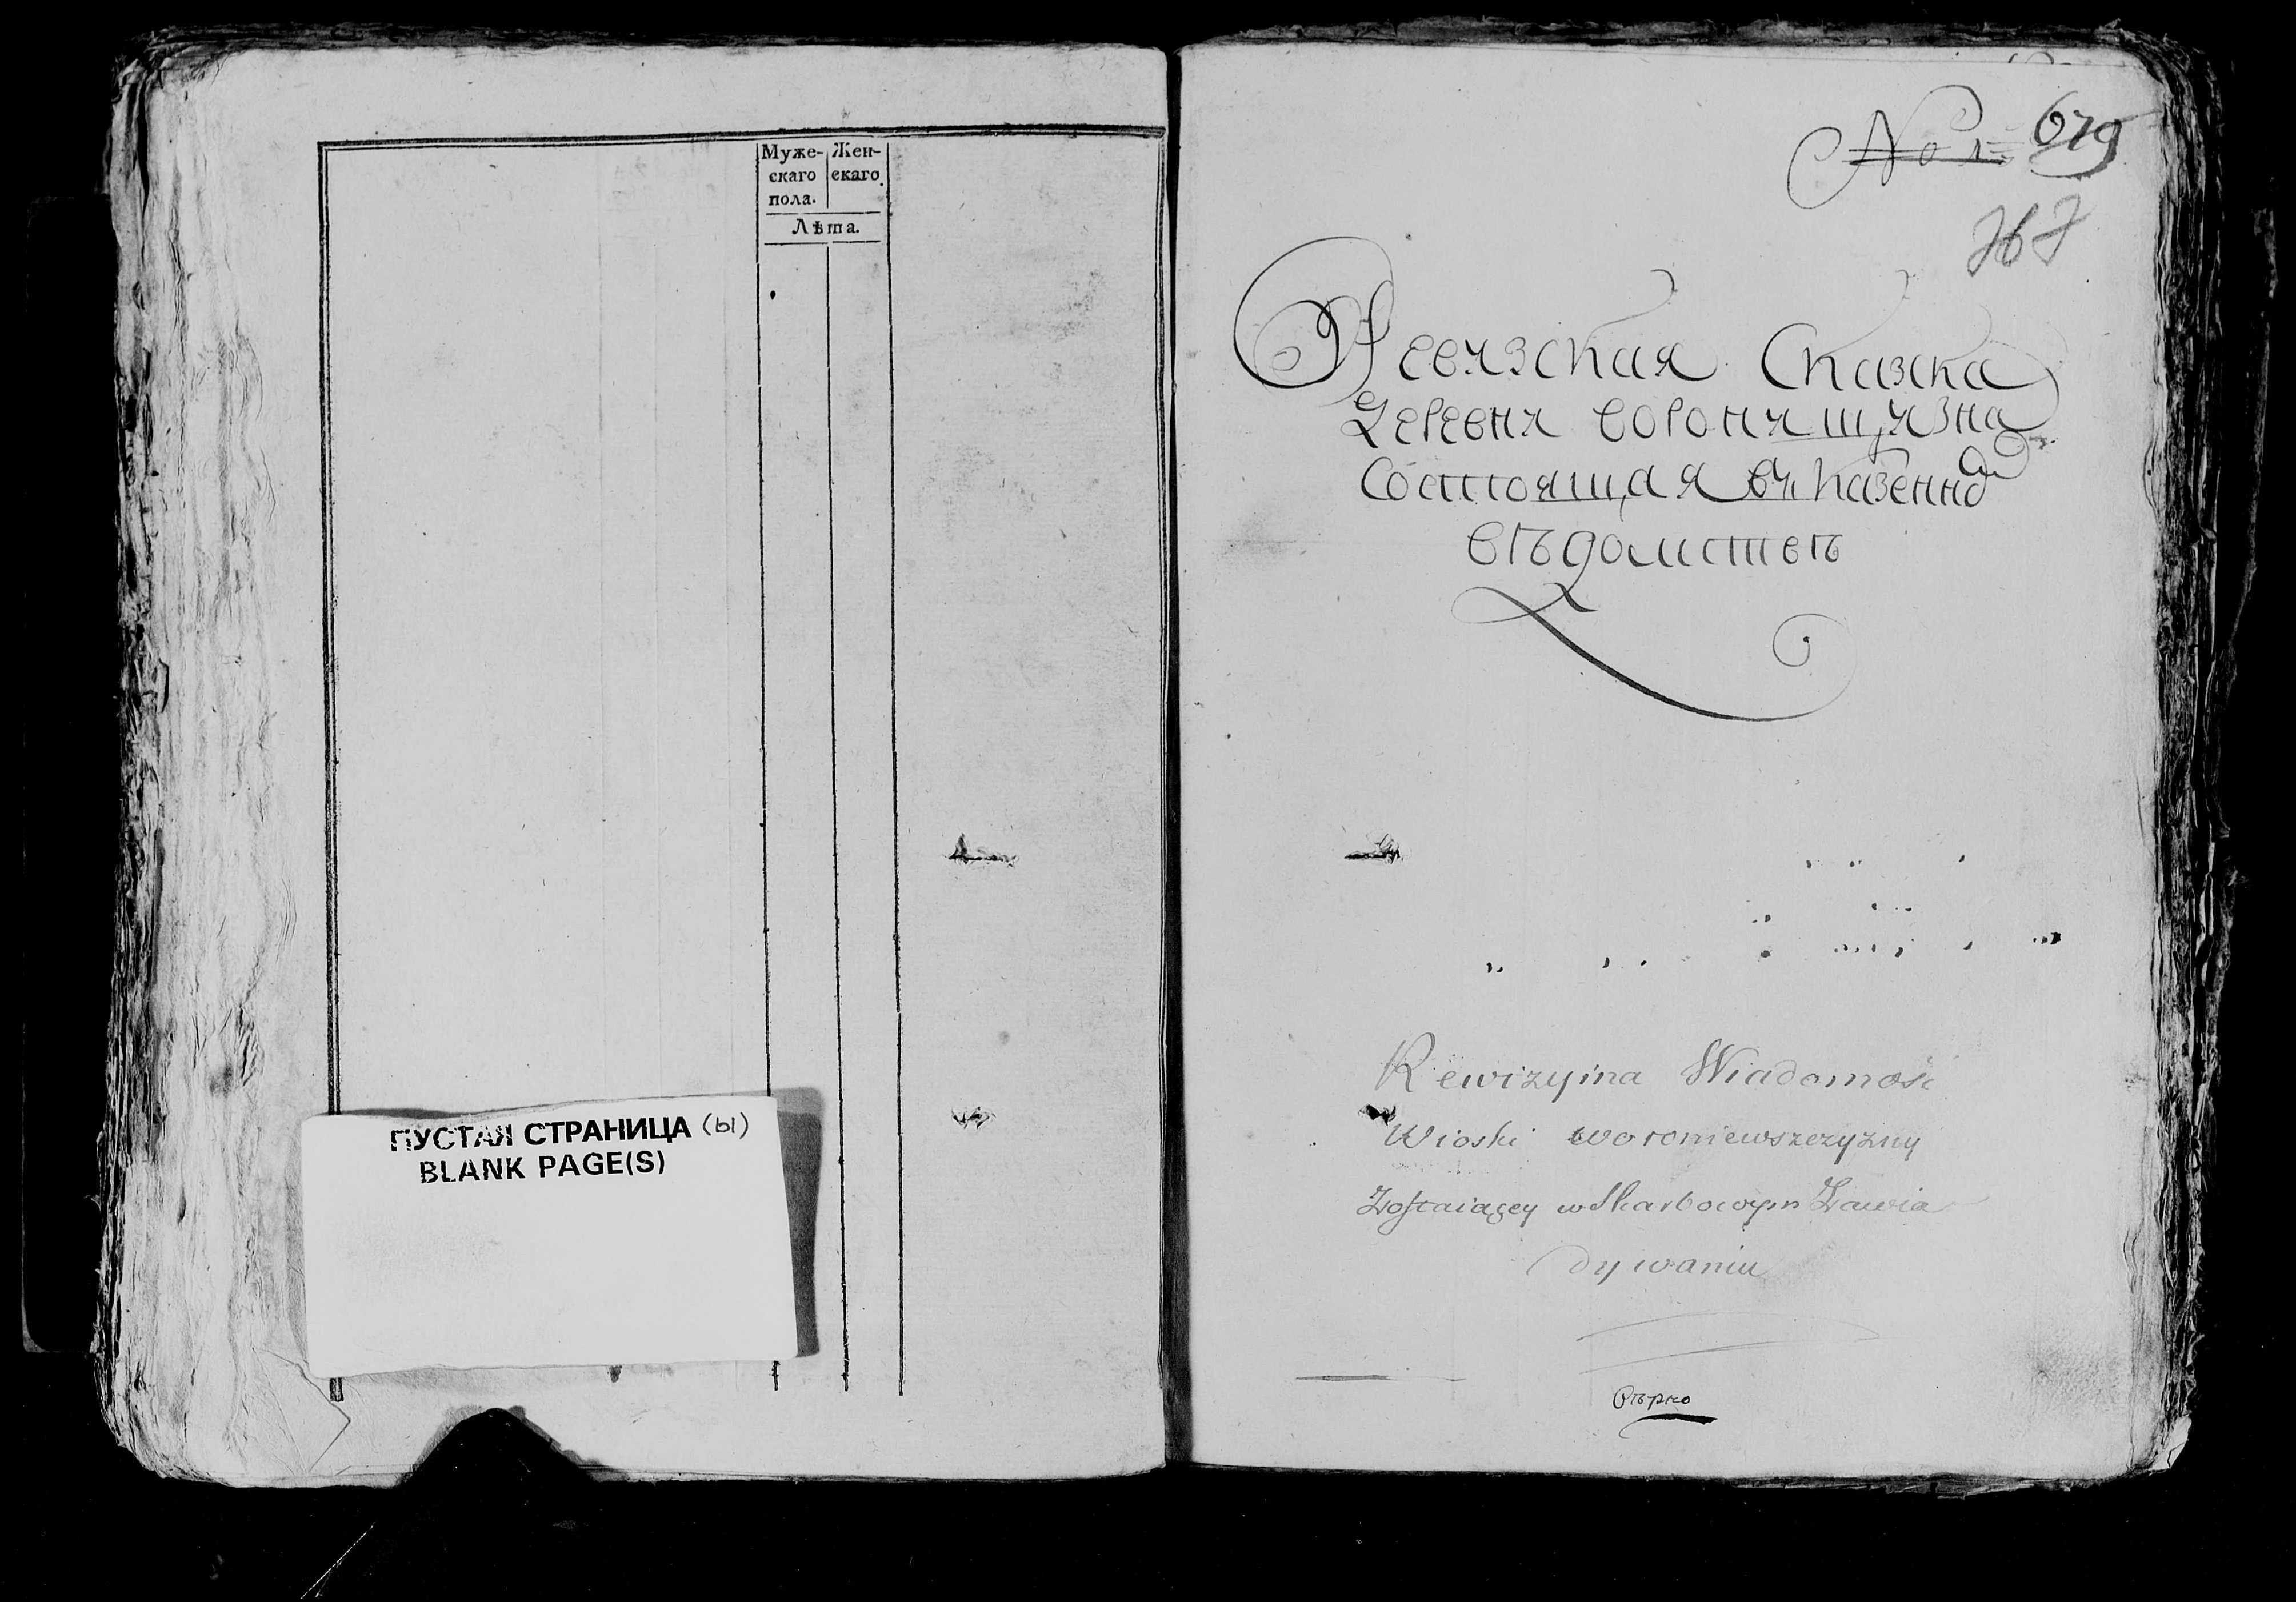 Муже-
скаго
пола.
Жен-
скаго.
Лѣта.
ПУСТАЯ СТРАНИЦА (Ы)
BLANK PAGE(S)
No 1 = 679
Ревизская Сказка
Деревни воронищизна
Состоящая въ казенно
вѣдомствѣ
Rewizyina Wiadomość
Wioski woroniewszczyzny
Zostaiącey w Skarbowym Zawia
dywaniu
Вѣрно